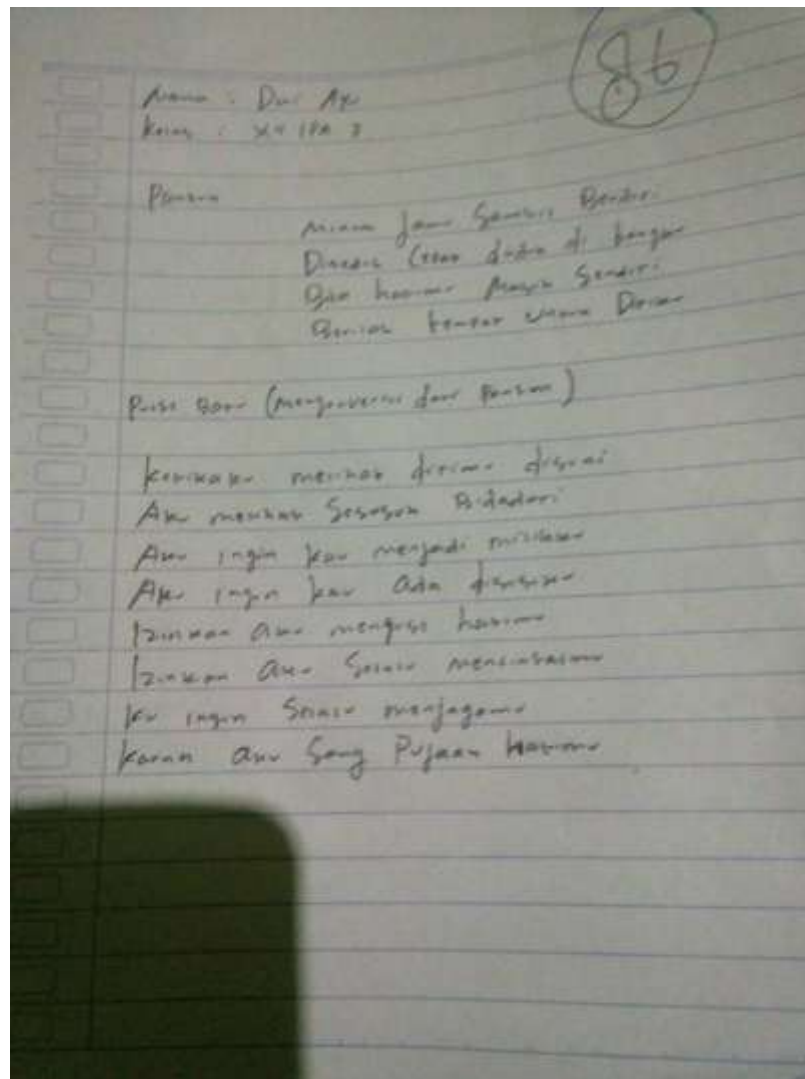 86
Nama : Dwi Ayu
Kelas : XII IPA 3
Pantun
Minum jamu Sambil Berdiri
Dimasin Cepat duduk di bangku
Bila hatimu Masih Sendiri
Berilah tempat untuk Diriku
Puisi Baru (mengonversi dari Pantun)
Ketikaku melihat dirimu disuai
Aku melihat Sesosok Bidadari
Aku ingin kau menjadi milikku
Aku ingin kau Ada disisiku
Izinkan aku mengisi hatimu
Izinkan aku Selalu mencintaimu
Ku ingin Selalu menjagamu
Karna aku Sang Pujaan hatimu